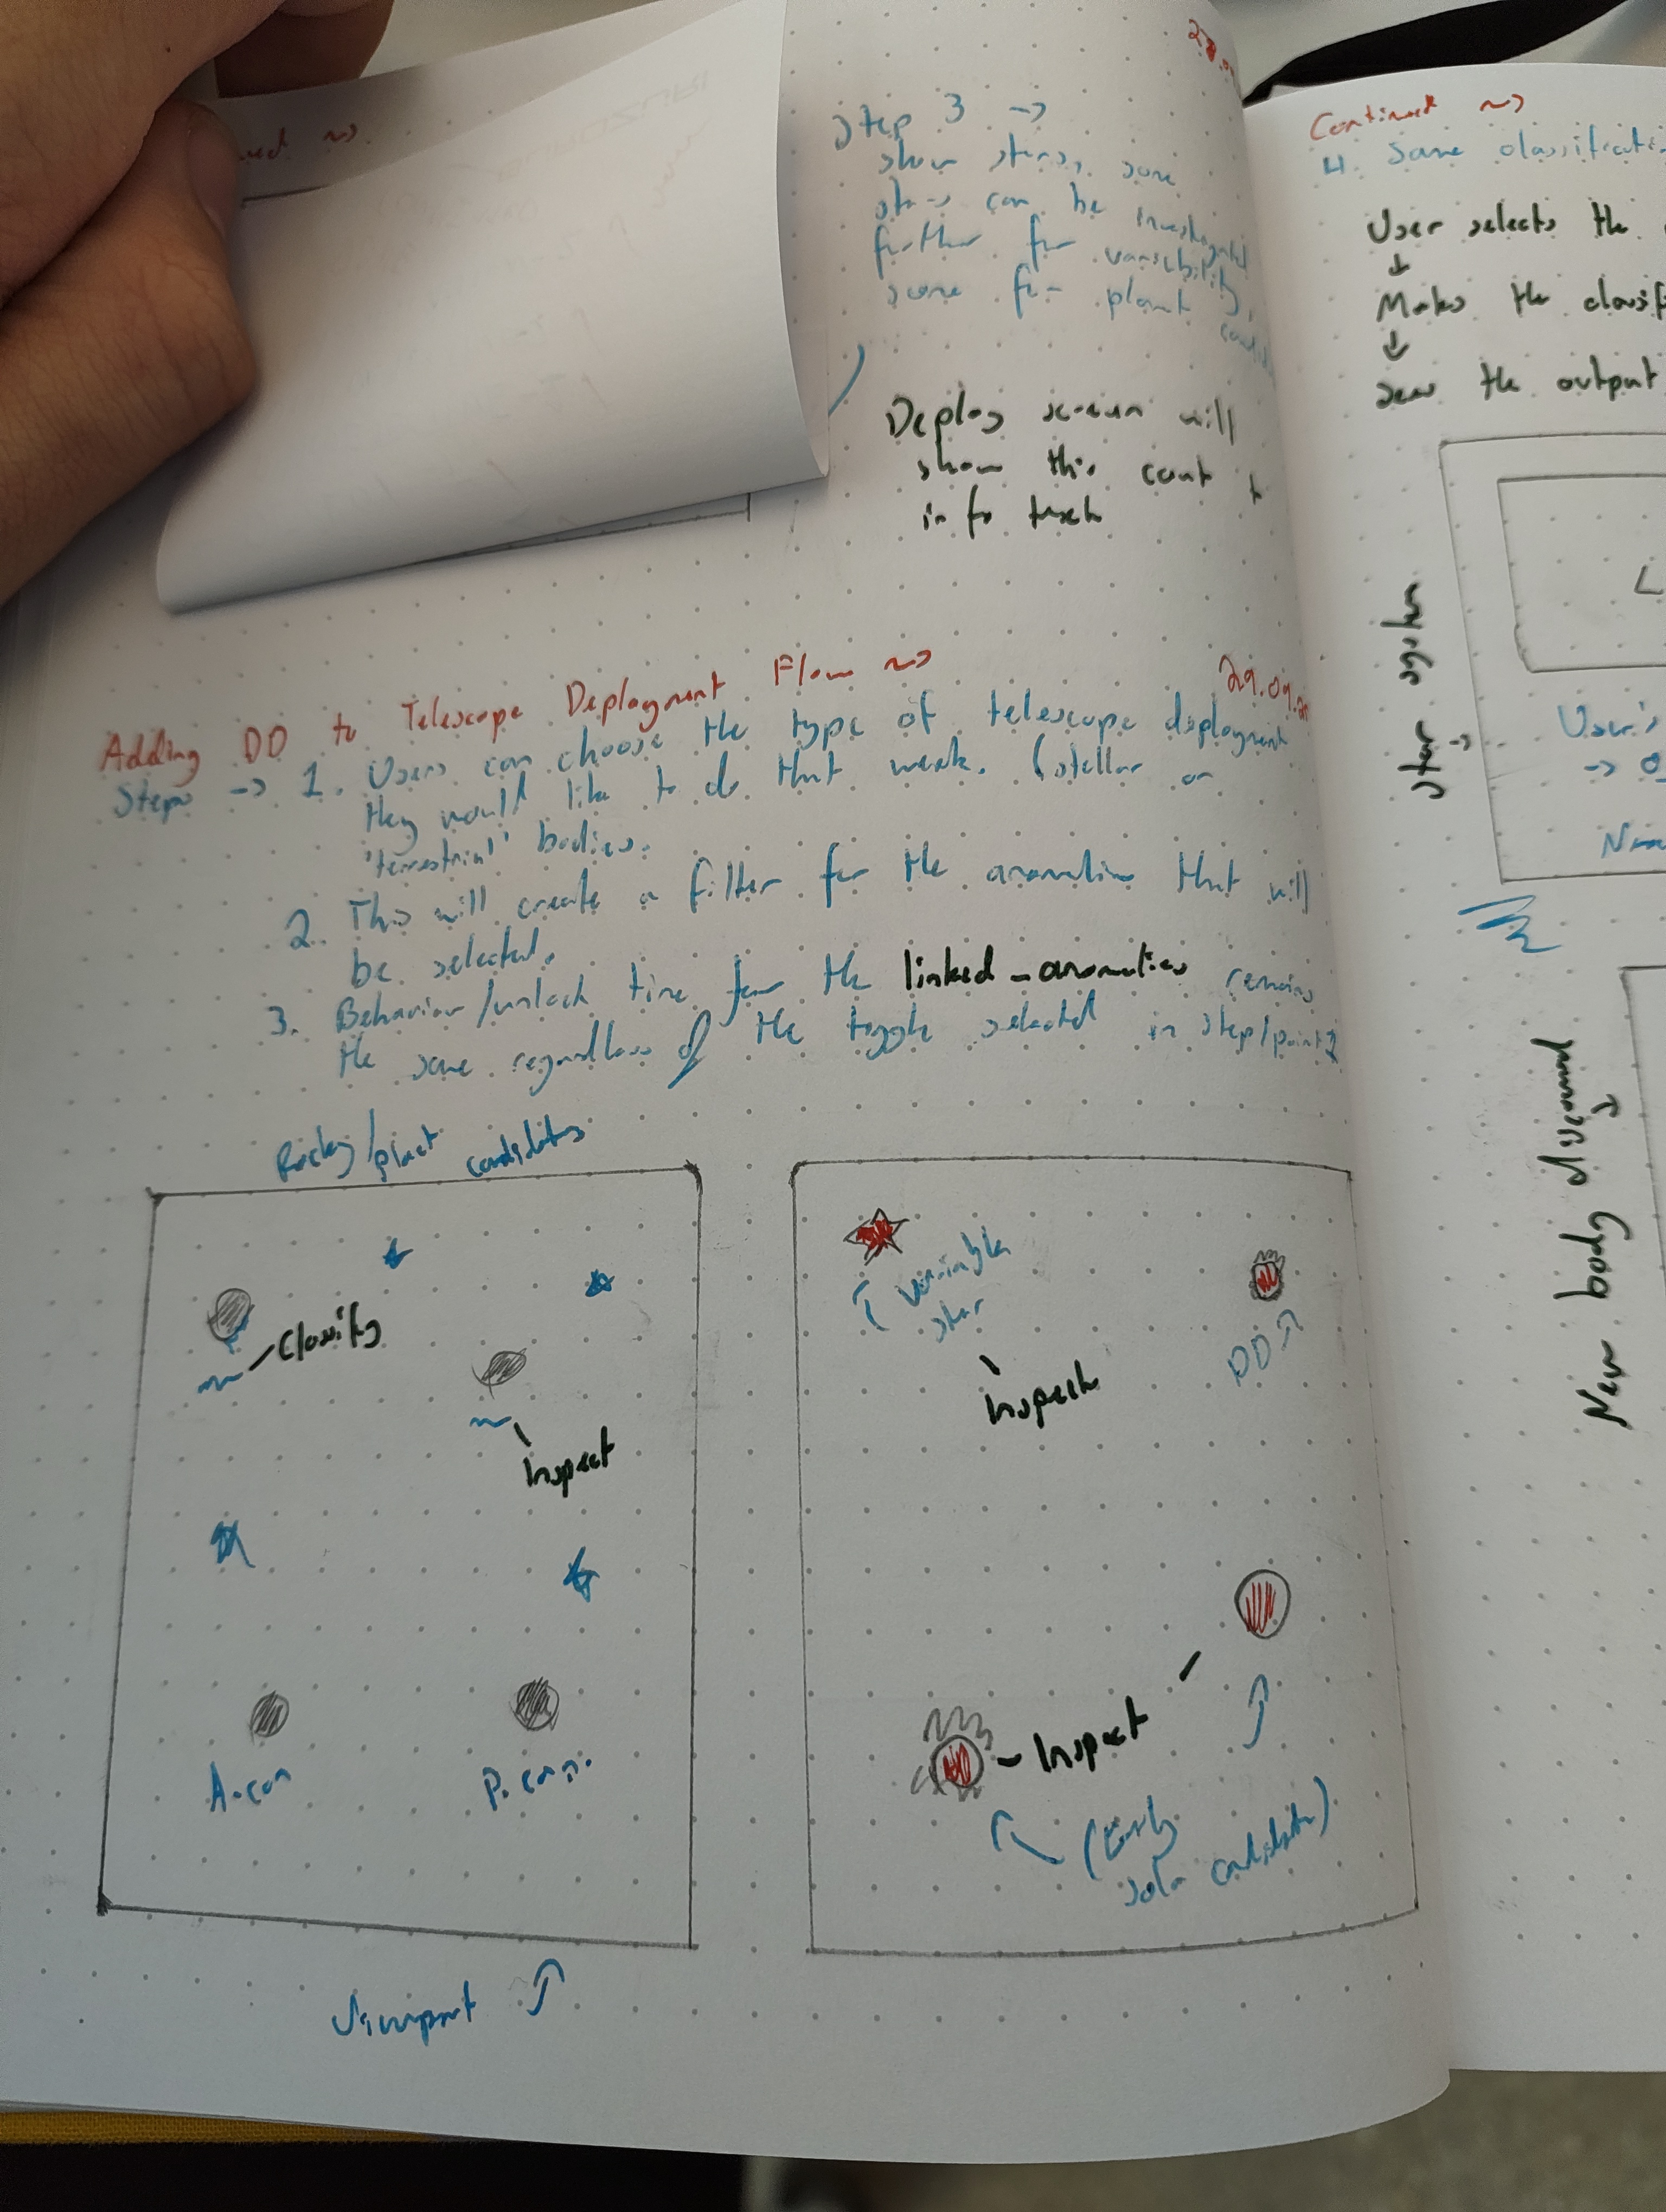 Step 3 ->
show stars, some
stars can be investigated
further for variability,
some for planet
Deploy screen will
show this count
info
Adding DD to Telescope Deployment Flow ~>
29.09.
Steps -> 1. Users can choose the type of telescope deployment
they would like to do that week. (stellar or
'terrestrial' bodies.
2. This will create a filter for the anomalies that will
be selected.
3. Behavior/unlock time for the linked_anomalies remains
the same regardless of the toggle selected in step/point 2
Rocky/planet candidates
Classify
Inspect
A. can
P. can.
Viewport
Variable
star
DD
Inspect
Inspect
(Early
solar candidate)
Continued ~>
4. Same
User selects the
↓
Makes the
↓
Sees the output
Star system
->
L
User's
->
New body discovered